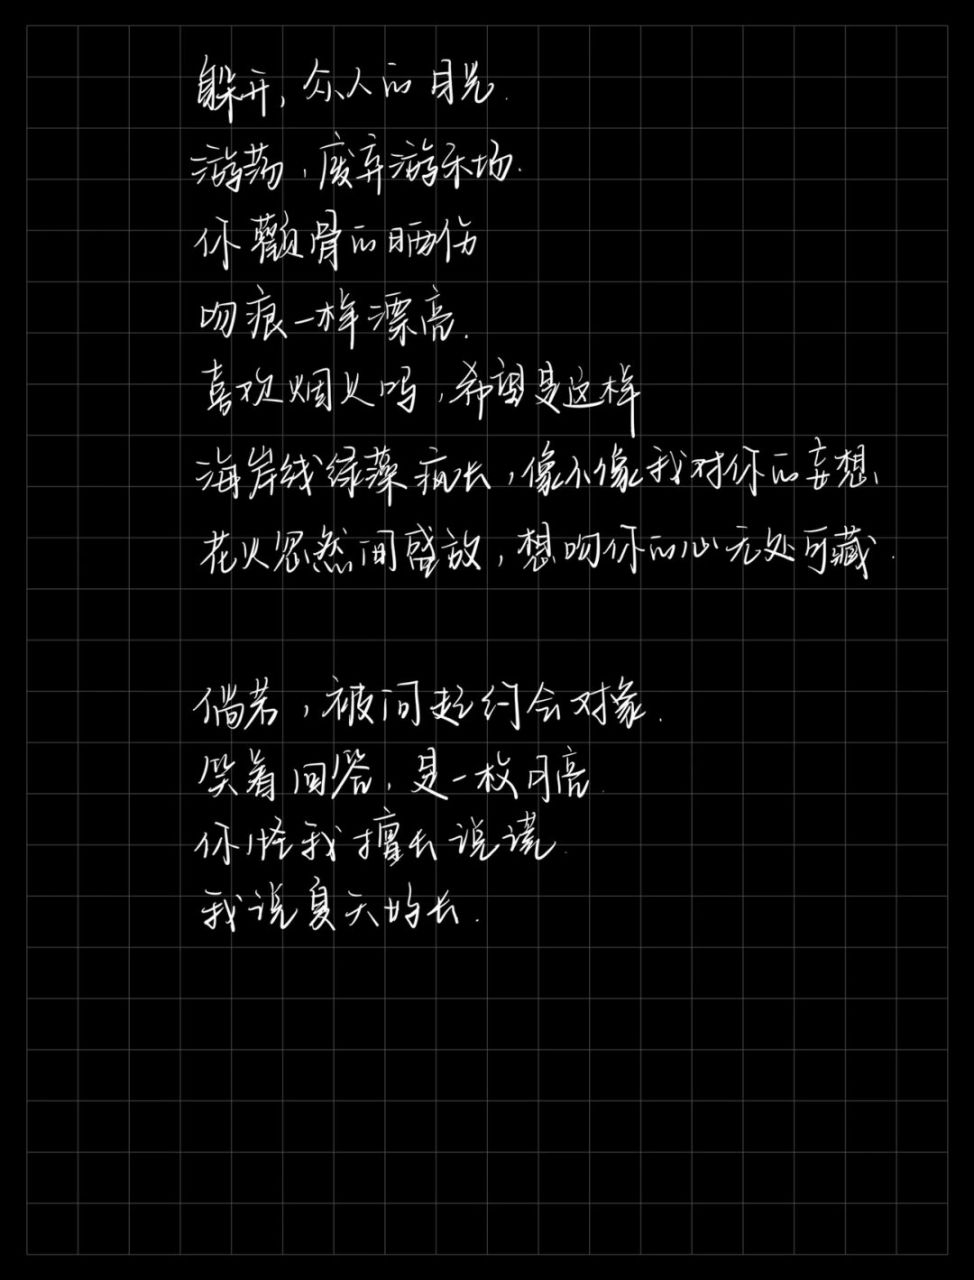 躲开,众人的目光.
游荡,废弃游乐场.
你颧骨的晒伤
吻痕一样漂亮.
喜欢烟火吗,希望是这样
海岸线绿藻疯长,像不像我对你的妄想、
花火忽然间盛放,想吻你的心无处可藏.
倘若,被问起约会对象.
笑着回答,是一枚月亮.
你怪我擅长说谎.
我说夏天好长.